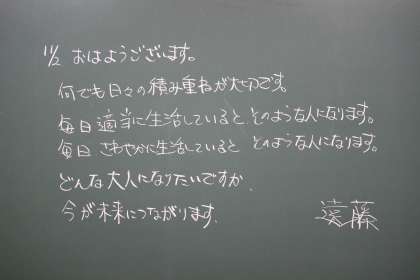 11/2 おはようございます。
何でも日々の積み重ねが大切です。
毎日適当に生活していると、そのような人になります。
毎日さわやかに生活していると そのような人になります。
どんな大人になりたいですか。
今が未来につながります。
遠藤